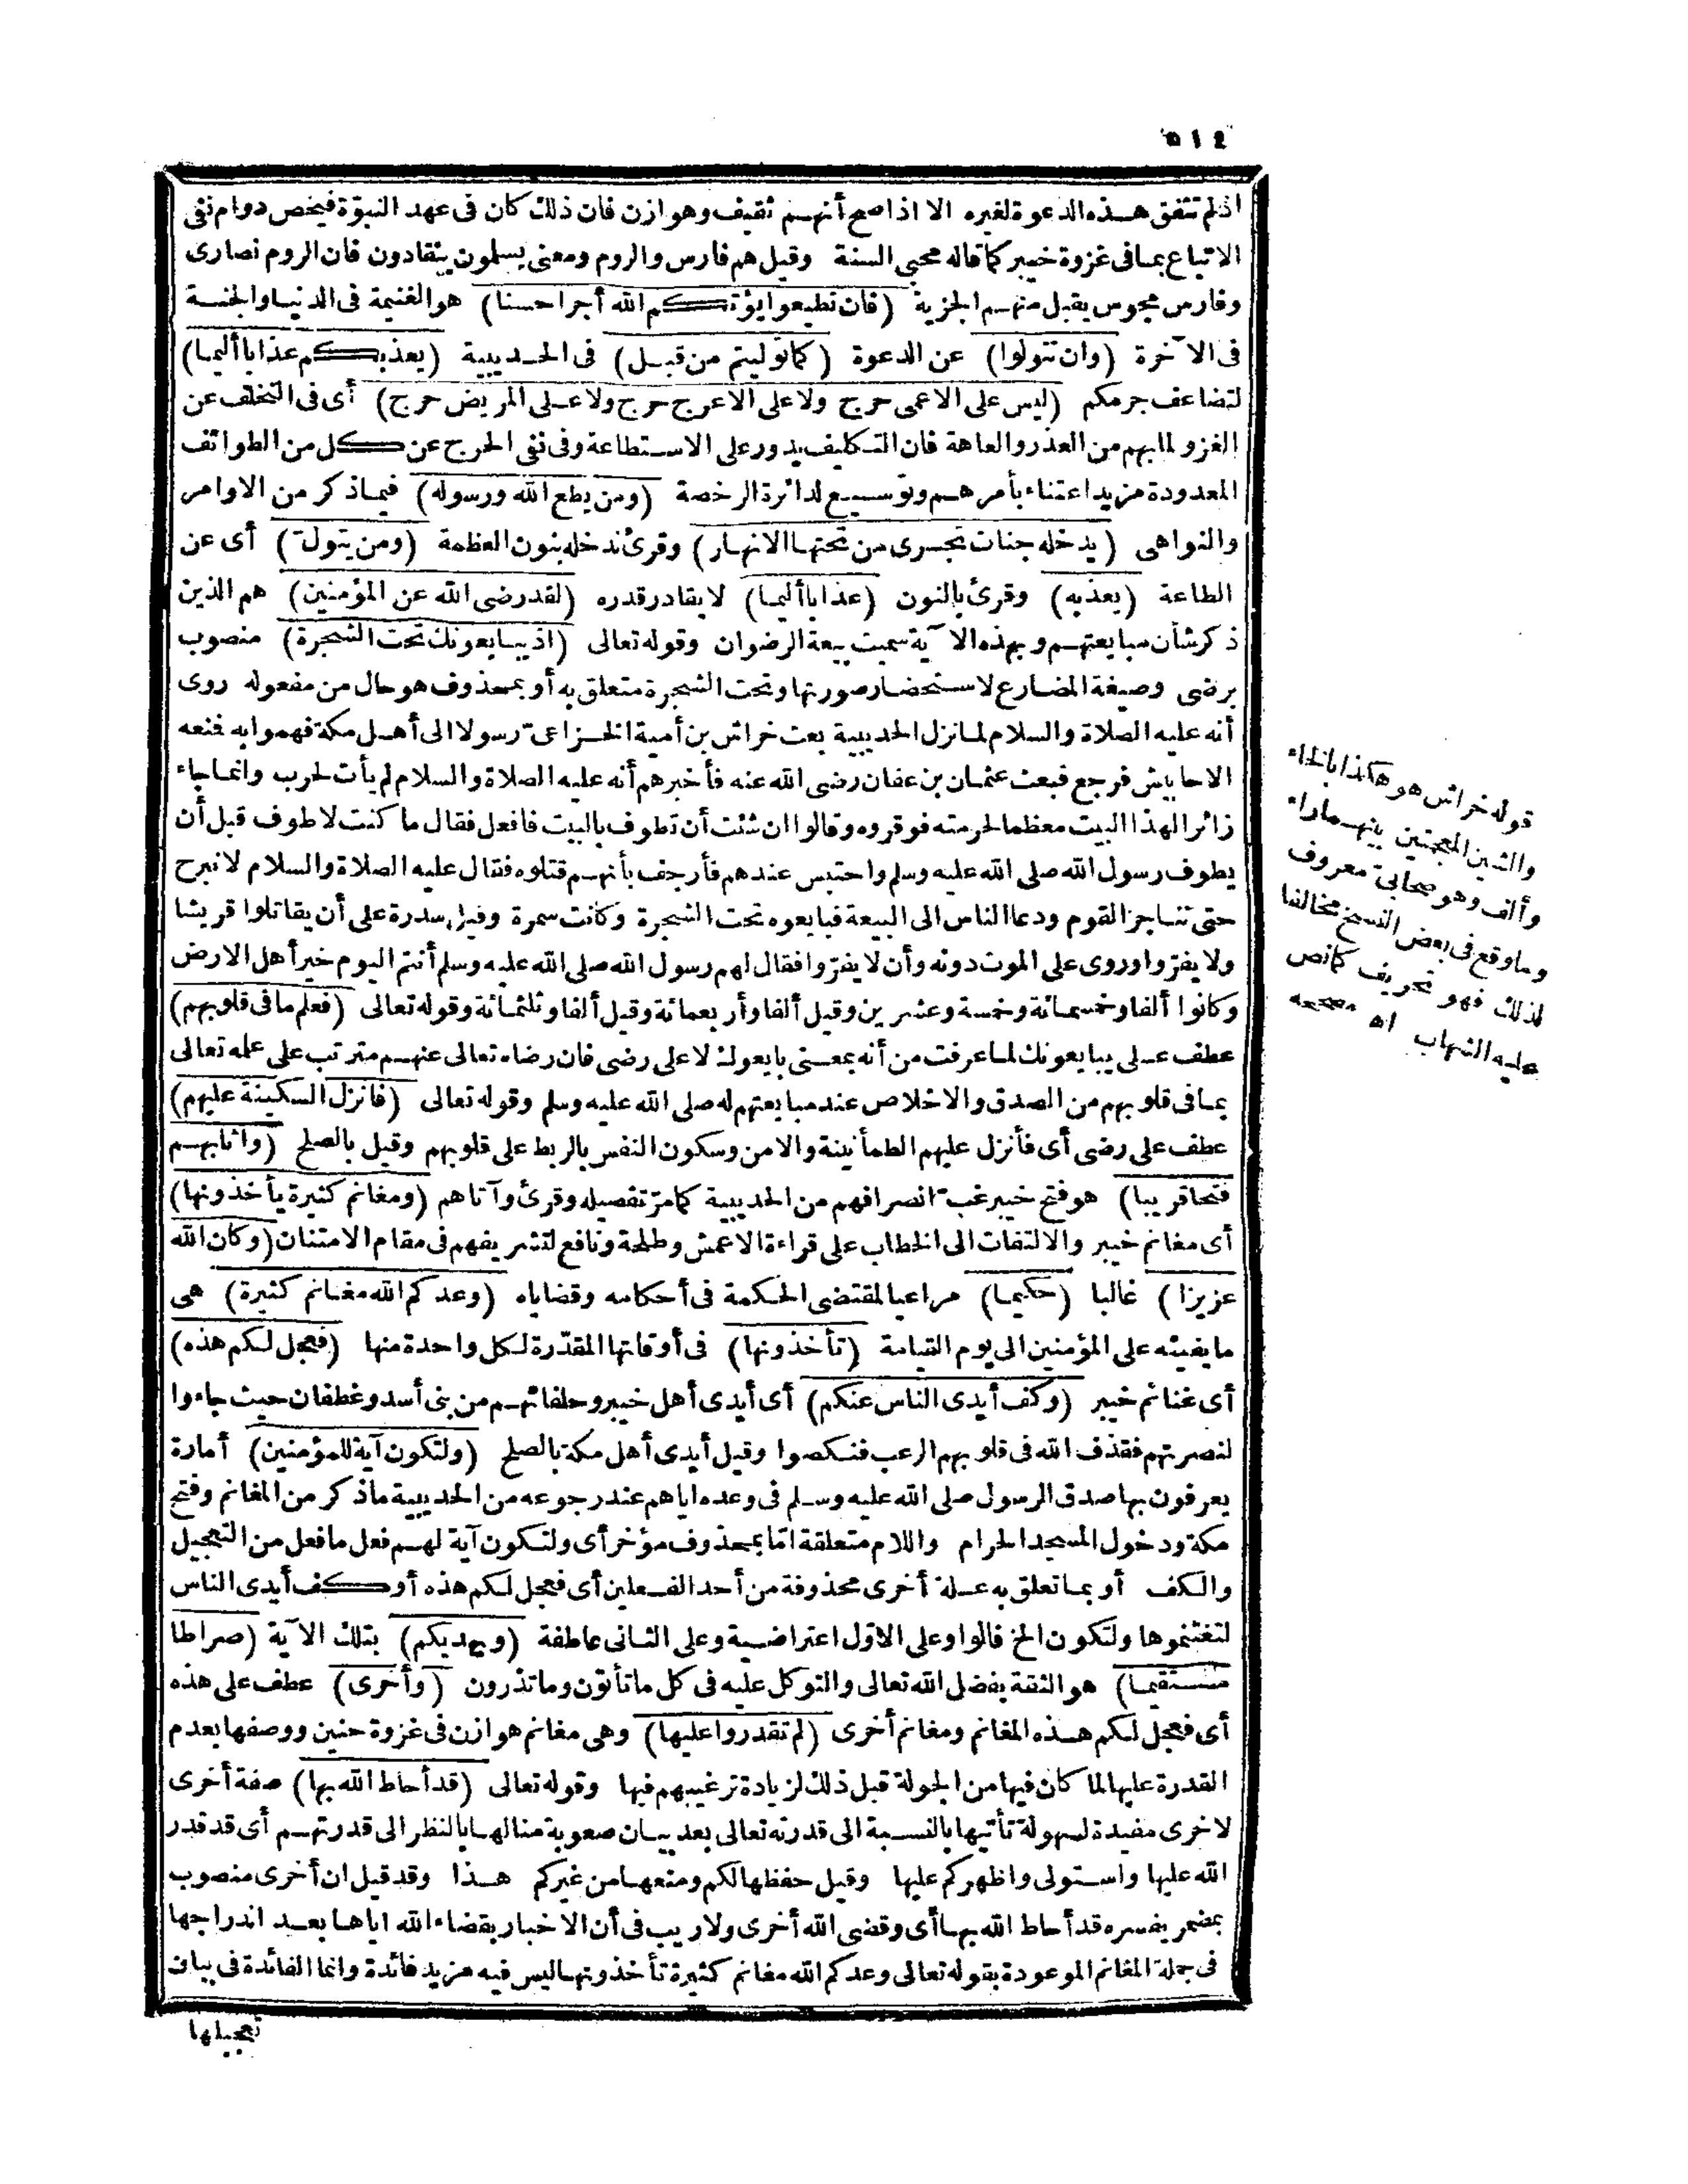 ٥١٤
اذ لم تتفق هذه الدعوة لغيره الا اذا صح أنهم ثقيف وهوازن فان ذلك كان فى عهد النبوّة فيخص دوام نفى
الاتباع بما فى غزوة خيبر كما قاله محيى السنة وقيل هم فارس والروم ومعنى يسلمون ينقادون فان الروم نصارى
وفارس مجوس يقبل منهم الجزية (فان تطيعوا يؤتكم الله أجرا حسنا) هو الغنيمة فى الدنيا والجنة
فى الآخرة (وان تتولوا) عن الدعوة (كما توليتم من قبل) فى الحديبية (يعذبكم عذابا أليما)
لتضاعف جرمكم (ليس على الاعمى حرج ولا على الاعرج حرج ولا على المريض حرج) أى فى التخلف عن
الغزو لما بهم من العذر والعاهة فان التكليف يدور على الاستطاعة وفى نفى الحرج عن كل من الطوائف
المعدودة مزيد اعتناء بأمرهم وتوسيع لدائرة الرخصة (ومن يطع الله ورسوله) فيما ذكر من الاوامر
والنواهى (يدخله جنات تجرى من تحتها الانهار) وقرئ ندخله بنون العظمة (ومن يتولّ) أى عن
الطاعة (يعذبه) وقرئ بالنون (عذابا أليما) لا يقادر قدره (لقد رضى الله عن المؤمنين) هم الذين
ذكر شأن مبايعتهم وبهذه الآية سميت بيعة الرضوان وقوله تعالى (اذ يبايعونك تحت الشجرة) منصوب
برضى وصيغة المضارع لاستحضار صورتها وتحت الشجرة متعلق به أو بمحذوف هو حال من مفعوله روى
أنه عليه الصلاة والسلام لما نزل الحديبية بعث خراش بن أمية الخزاعىّ رسولا الى أهل مكة فهموا به فنعه
الاحابيش فرجع فبعث عثمان بن عفان رضى الله عنه فأخبرهم أنه عليه الصلاة والسلام لم يأت لحرب وانما جاء
زائرا لهذا البيت معظما لحرمته فوقروه وقالوا ان شئت أن تطوف بالبيت فافعل فقال ما كنت لاطوف قبل أن
يطوف رسول الله صلى الله عليه وسلم واحتبس عندهم فأرجف بأنهم قتلوه فقال عليه الصلاة والسلام لا نبرح
حتى نناجز القوم ودعا الناس الى البيعة فبايعوه تحت الشجرة وكانت سمرة وقيل سدرة على أن يقاتلوا قريشا
ولا يفرّوا وروى على الموت دونه وأن لا يفرّوا فقال لهم رسول الله صلى الله عليه وسلم أنتم اليوم خير أهل الارض
وكانوا ألفا وخمسمائة وخمسة وعشرين وقيل ألفا وأربعمائة وقيل ألفا وثلثمائة وقوله تعالى (فعلم ما فى قلوبهم)
عطف على يبايعونك لما عرفت من أنه بمعنى بايعوك لا على رضى فان رضاه تعالى عنهم مترتب على علمه تعالى
بما فى قلوبهم من الصدق والاخلاص عند مبايعتهم له صلى الله عليه وسلم وقوله تعالى (فانزل السكينة عليهم)
عطف على رضى أى فأنزل عليهم الطمأنينة والامن وسكون النفس بالربط على قلوبهم وقيل بالصلح (وأثابهم
فتحا قريبا) هو فتح خيبر غبّ انصرافهم من الحديبية كما مرّ تفصيله وقرئ وآتاهم (ومغانم كثيرة يأخذونها)
أى مغانم خيبر والالتفات الى الخطاب على قراءة الاعمش وطلحة ونافع لتشريفهم فى مقام الامتنان (وكان الله
عزيزا) غالبا (حكيما) مراعيا لمقتضى الحكمة فى أحكامه وقضاياه (وعدكم الله مغانم كثيرة) هى
ما يفيئه على المؤمنين الى يوم القيامة (تأخذونها) فى أوقاتها المقدّرة لكل واحدة منها (فعجل لكم هذه)
أى غنائم خيبر (وكف أيدى الناس عنكم) أى أيدى أهل خيبر وحلفائهم من بنى أسد وغطفان حيث جاءوا
لنصرتهم فقذف الله فى قلوبهم الرعب فنكصوا وقيل أيدى أهل مكة بالصلح (ولتكون آية للمؤمنين) أمارة
يعرفون بها صدق الرسول صلى الله عليه وسلم فى وعده اياهم عند رجوعه من الحديبية ما ذكر من المغانم وفتح
مكة ودخول المسجد الحرام واللام متعلقة امّا بمحذوف مؤخر أى ولتكون آية لهم فعل ما فعل من التعجيل
والكف أو بما تعلق به علة أخرى محذوفة من أحد الفعلين أى فعجل لكم هذه أو كف أيدى الناس
لتغتنموها ولتكون الخ فالواو على الاوّل اعتراضية وعلى الثانى عاطفة (ويهديكم) بتلك الآية (صراطا
مستقيما) هو الثقة بفضل الله تعالى والتوكل عليه فى كل ما تأتون وما تذرون (وأخرى) عطف على هذه
أى فعجل لكم هذه المغانم ومغانم أخرى (لم تقدروا عليها) وهى مغانم هوازن فى غزوة حنين ووصفها بعدم
القدرة عليها لما كان فيها من الجولة قبل ذلك لزيادة ترغيبهم فيها وقوله تعالى (قد أحاط الله بها) صفة أخرى
لاخرى مفيدة لسهولة تأتيها بالنسبة الى قدرته تعالى بعد بيان صعوبة منالها بالنظر الى قدرتهم أى قد قدر
الله عليها واستولى وأظهركم عليها وقيل حفظها لكم ومنعها من غيركم هذا وقد قيل ان أخرى منصوب
بمضمر يفسره قد أحاط الله بها أى وقضى الله أخرى ولا ريب فى أن الاخبار بقضاء الله اياها بعد اندراجها
فى جملة المغانم الموعودة بقوله تعالى وعدكم الله مغانم كثيرة تأخذونها ليس فيه مزيد فائدة وانما الفائدة فى بيان
تعجيلها
قوله خراش هو هكذا بالخاء
والشين المعجمتين بينهما راء
وألف وهو صحابىّ معروف
وما وقع فى بعض النسخ مخالفا
لذلك فهو تحريف كما نص
عليه الشهاب اه مصححه